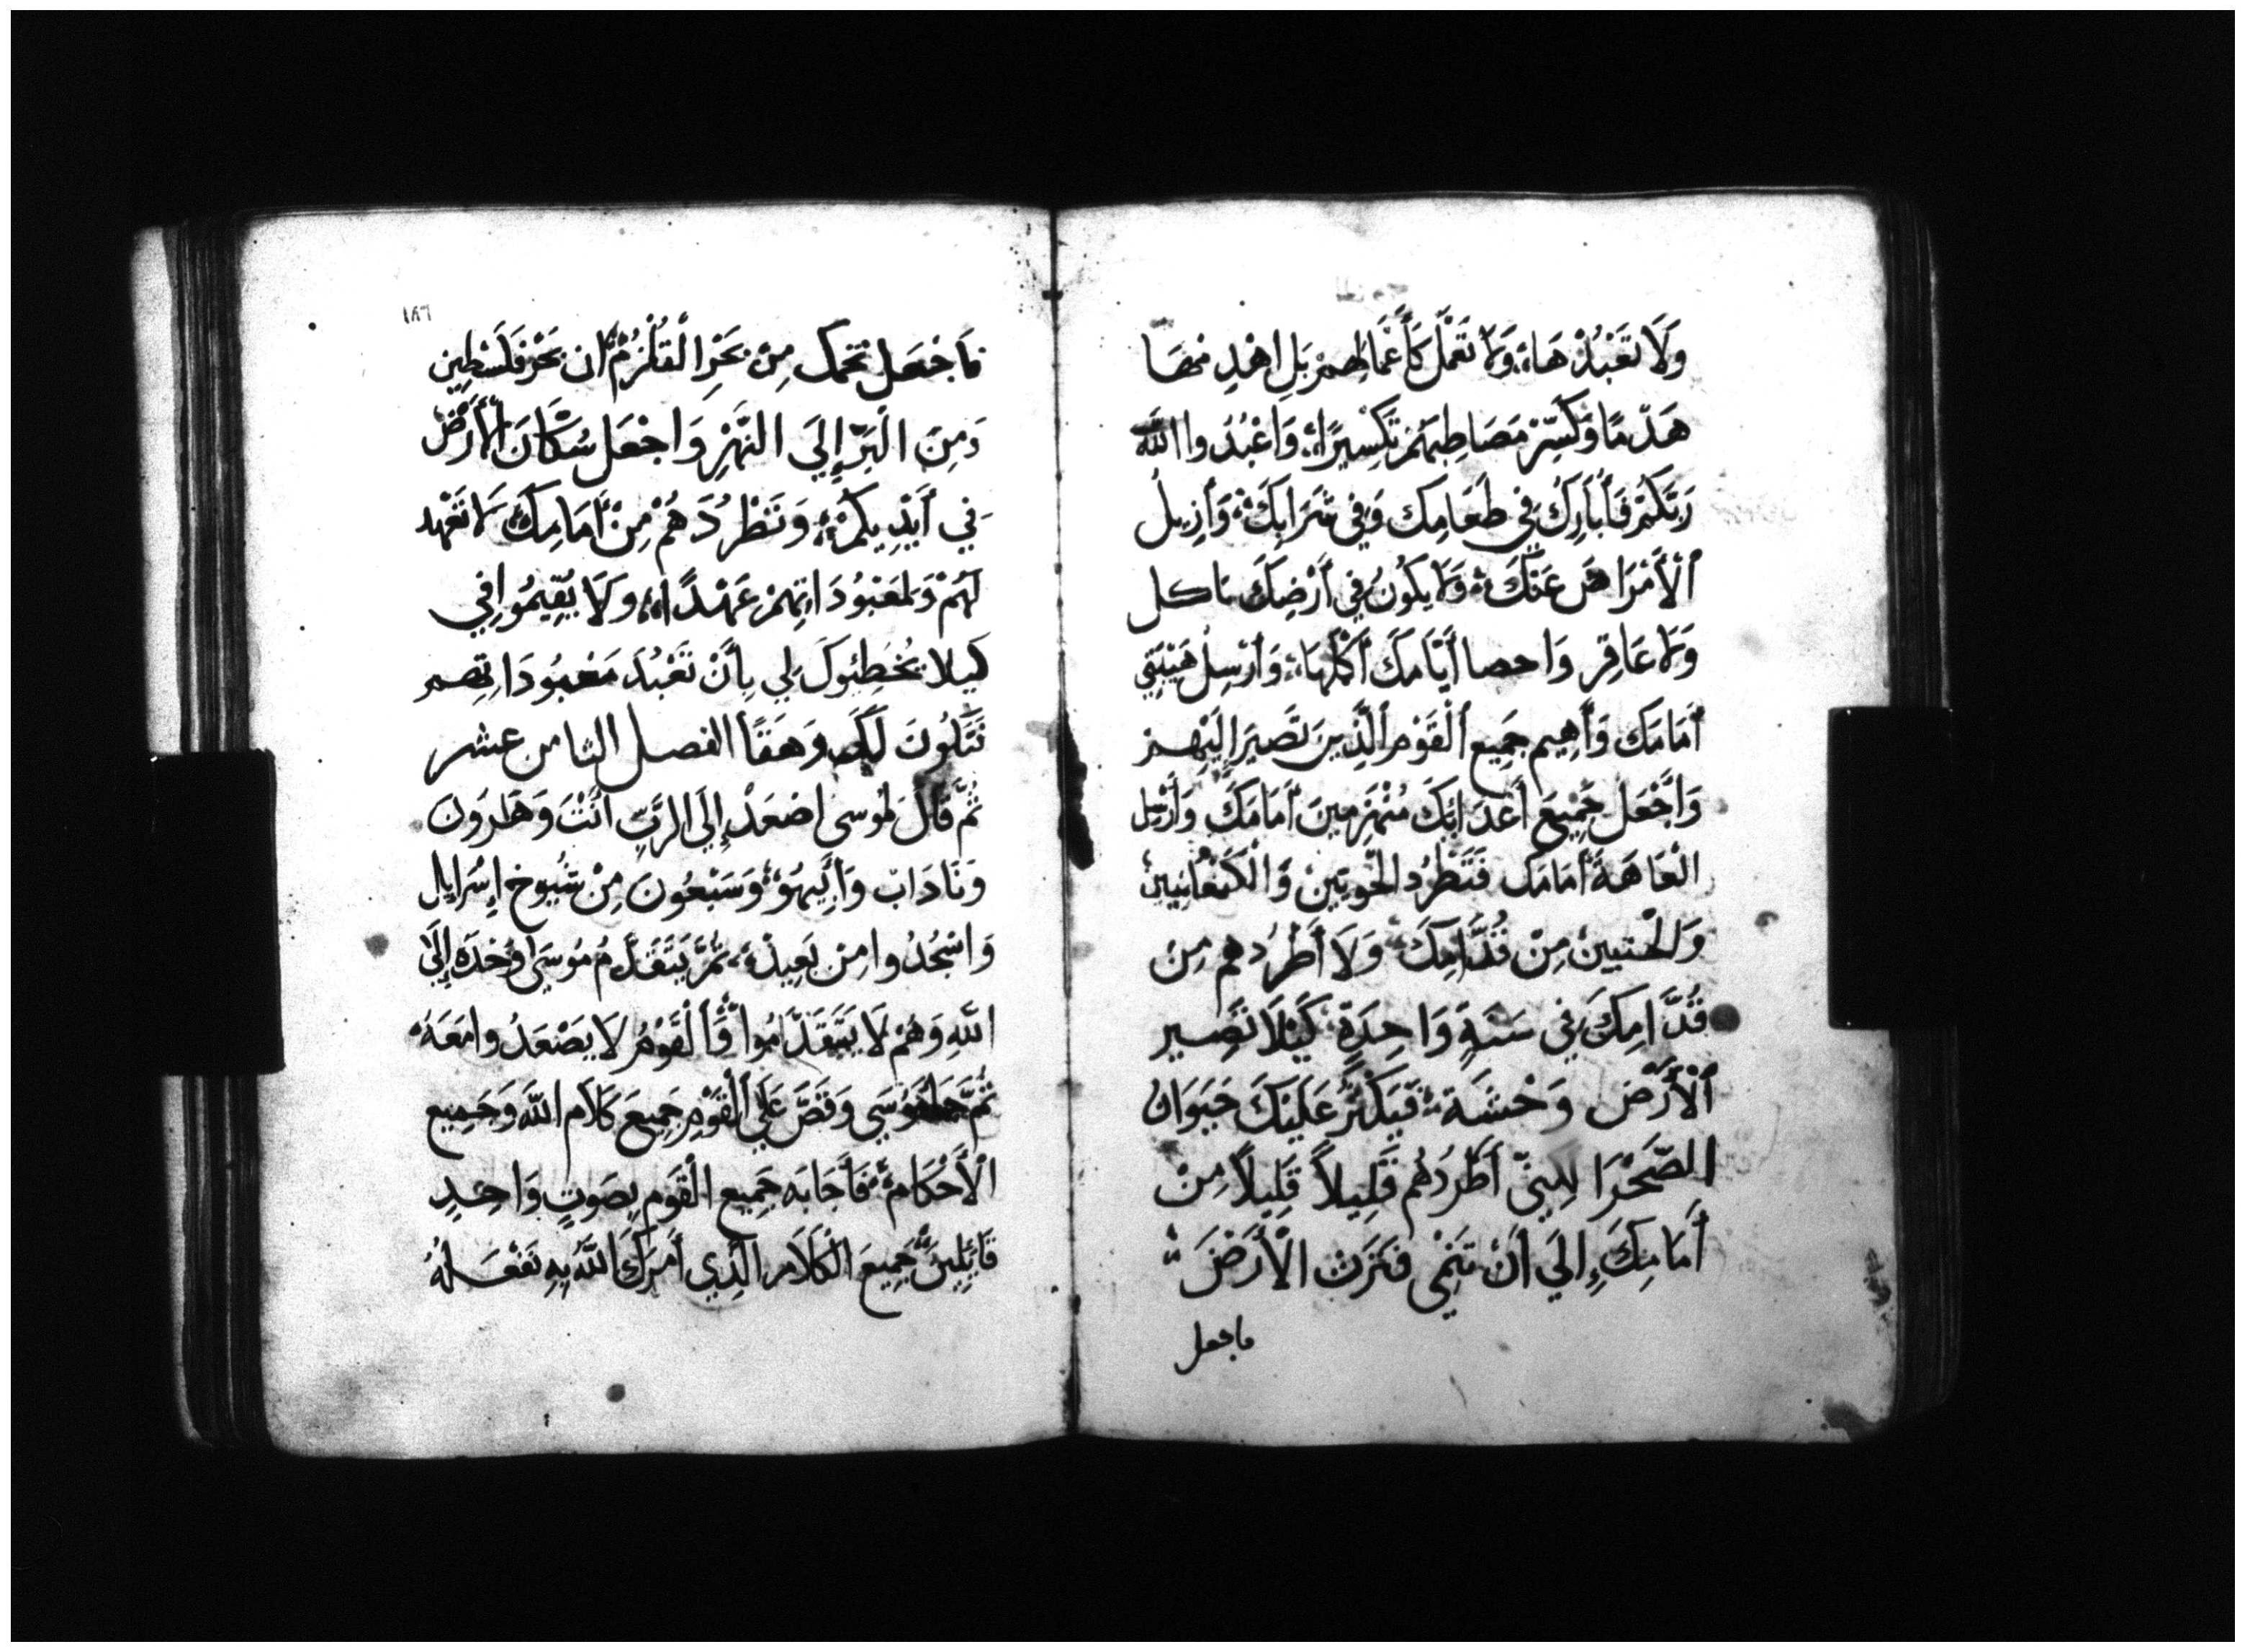 وَلَا تَعْبُدْهَا وَلَا تَعْمَل كَأَعْمَالِهِمْ بَلِ اهْدِمهَا
هَدْمًا وَكَسِّرْ مَصَاطِبَهُمْ تَكْسِيرًا وَاعْبُدُوا اللَّه
رَبَّكُمْ فَأُبَارِكُ فِي طَعَامِكَ وَفِي شَرَابِكَ وَأُزِيلُ
ٱلْأَمْرَاضَ عَنْكَ وَلَا يَكُونُ فِي أَرْضِكَ ثاكل
وَلَا عَاقِر وَاحصا أَيَّامِكَ أُكْمِلُهَا وَأُرْسِلُ هَيْبَتِي
أَمَامَكَ وَأُهِيم جَمِيع ٱلْقَوْمِ ٱلَّذِينَ تَصِيرَ إِلَيْهِمْ
وَأَجْعَل جَمِيعَ أَعْدَائِكَ مُنْهَزِمِينَ أَمَامَكَ وَأُرْسِل
الْعَاهَةَ أَمَامَك فَتَطْرُد الْحَوِيِّينَ وَالْكَنْعَانِيِّينَ
وَالْحَتِيينَ مِنْ قُدَّامِكَ وَلَا أَطْرُدهم مِنْ
قُدَّامِكَ فِي سَنَةٍ وَاحِدَةٍ كَيْلَا تَصِير
ٱلْأَرْضُ وَحْشَة فَيَكْثُرُ عَلَيْكَ حَيَوَانُ
الصَّحْرَا لكِنِّي أَطْرُدُهُمْ قَلِيلاً قَلِيلاً مِنْ
أَمَامِكَ إِلَى أَنْ تَنْمِي فَتَرِثَ الْأَرْضَ
فاجعل
١٨٦
فَأَجْعَل تخمك مِنْ بَحْرِ الْقُلْزُمْ إلى بَحْر فَلَسْطِين
وَمِنَ الْبَرِّ إِلَى النَّهْرِ وَاجْعَل سُكَّانَ الْأَرْضِ
فِي أَيْدِيكُمْ وَتَطْرُدَهُمْ مِنْ أَمَامِكَ لَا تَعْهد
لَهُمْ وَلمَعْبُودَاتِهِمْ عَهْدًا وَلَا يُقِيمُوا فِي
كيلا يُخْطِئوكَ لِي بِأَنْ تَعْبُدَ مَعْبُودَاتِهِم
فَتَكُونَ لَكَ وَهَقًا الفصل الثامن عشر
ثُمَّ قَالَ لمُوسى اصْعَدْ إِلَى الرَّبِّ أَنْتَ وَهَارُونَ
وَنَادَاب وَأَبِيهُو وَسَبْعُونَ مِنْ شُيُوخِ إِسْرَايِل
وَاسْجُدُوا مِن بَعِيدْ ثُمَّ يَتَقَدَّمُ مُوسَى وَحْدَهُ إِلَى
اللَّهِ وَهُمْ لَا يَتَقَدَّمُوا وَٱلْقَوْمُ لَا يَصْعَدُوا مَعَهُ
ثُمَّ جا مُوسَى وَقَصَّ عَلَى ٱلْقَوْمِ جَمِيعَ كَلَام اللَّه وَجَمِيع
الْأَحْكَامْ فَأَجَابَه جَمِيع الْقَوم بِصَوتٍ وَاحِدٍ
قَائِلِينَ جَمِيعَ الْكَلَام الَّذِي أَمَرَكَ اللَّهُ بِهِ نَفْعَلُهُ